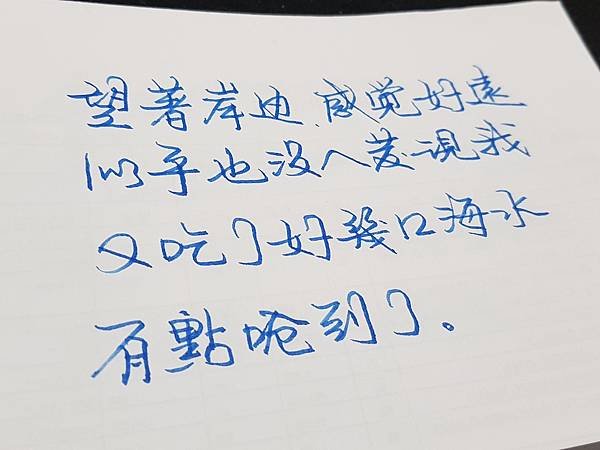 望著岸边,感觉好遠
似乎也没人发現我
又吃了好幾口海水
有點嗆到了。